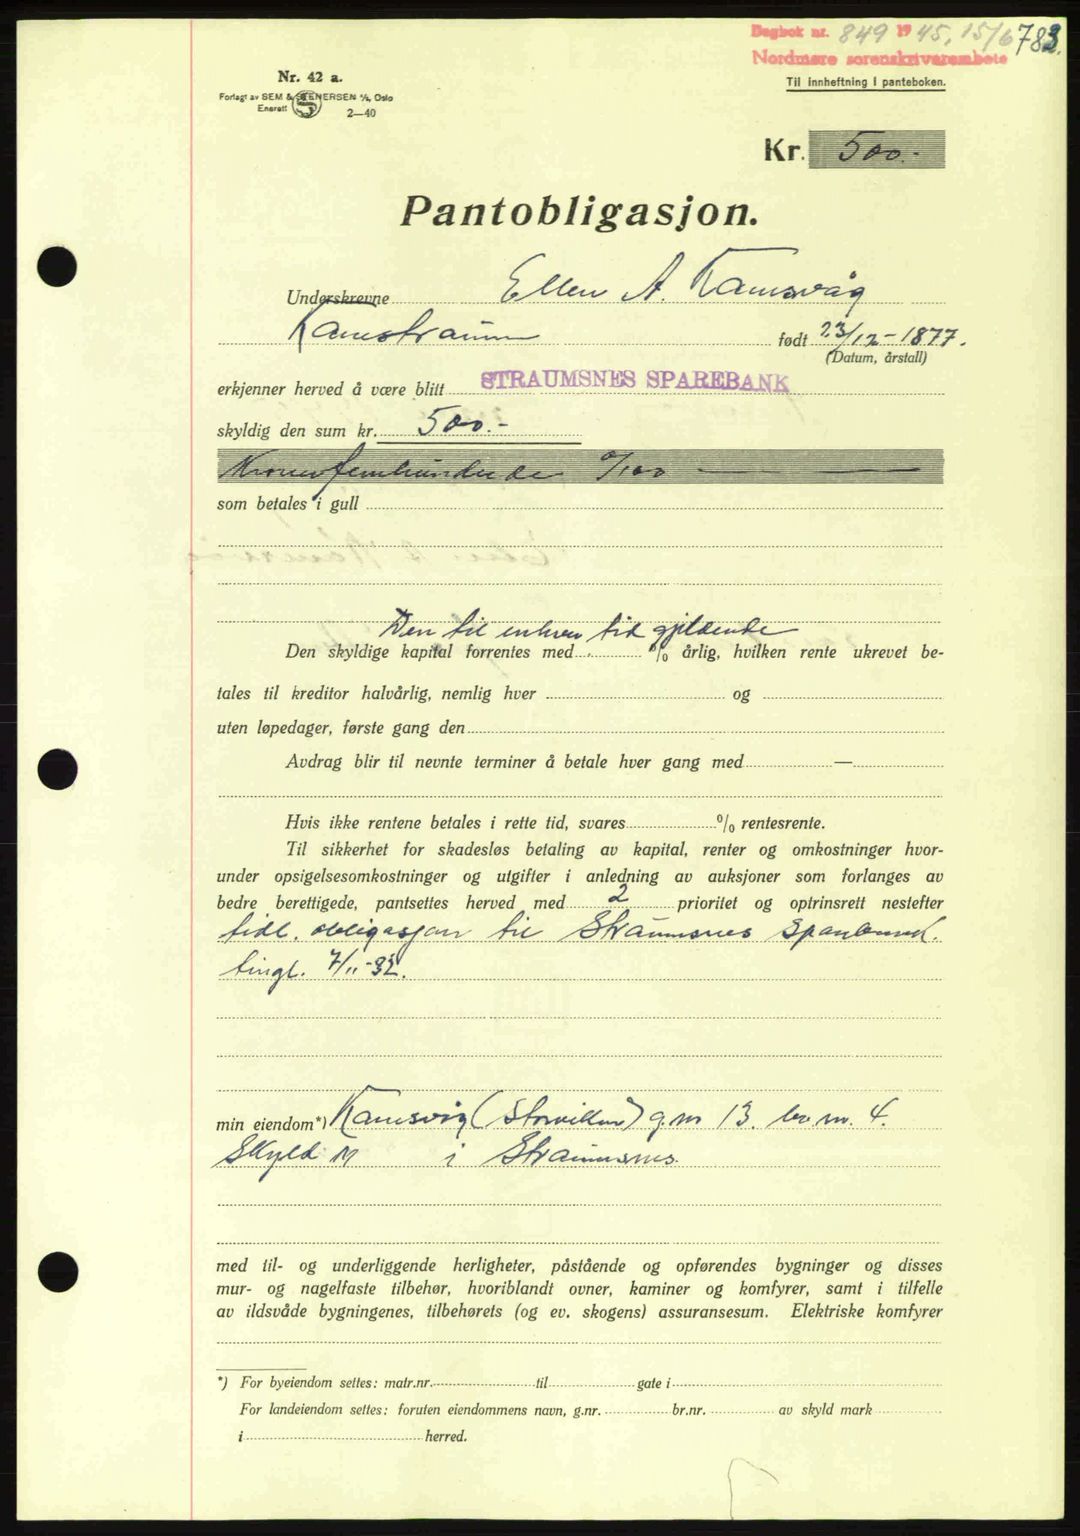 Dagbok nr. 849 1945, 15/6 783.
Nordmøre sorenskriverembete
Til innheftning i panteboken.
Nr. 42 a.
Forlagt av SEM & STENERSEN A/S, Oslo
Enerett
2—40
Kr. 500.-
Pantobligasjon.
Underskrevne Ellen A. Kamsvåg
Kamstraum født 23/12-1877.
(Datum, årstall)
erkjenner herved å være blitt STRAUMSNES SPAREBANK
skyldig den sum kr. 500.-
Kroner femhundrede 0/100
som betales i gull
Den til enhver tid gjeldende
Den skyldige kapital forrentes med % årlig, hvilken rente ukrevet be-
tales til kreditor halvårlig, nemlig hver og
uten løpedager, første gang den
Avdrag blir til nevnte terminer å betale hver gang med —
Hvis ikke rentene betales i rette tid, svares % rentesrente.
Til sikkerhet for skadesløs betaling av kapital, renter og omkostninger hvor-
under opsigelsesomkostninger og utgifter i anledning av auksjoner som forlanges av
bedre berettigede, pantsettes herved med 2 prioritet og optrinsrett nestefter
tidl. obligasjon til Straumsnes Sparebank.
tingl. 7/11-32.
min eiendom*) Kamsvåg (Storvillen) g.nr 13. br.nr. 4.
Skyld M i Straumsnes.
med til- og underliggende herligheter, påstående og opførendes bygninger og disses
mur- og nagelfaste tilbehør, hvoriblandt ovner, kaminer og komfyrer, samt i tilfelle
av ildsvåde bygningenes, tilbehørets (og ev. skogens) assuransesum. Elektriske komfyrer
*) For byeiendom settes: matr.nr. til gate i
For landeiendom settes: foruten eiendommens navn, g.nr. br.nr. av skyld mark
i herred.